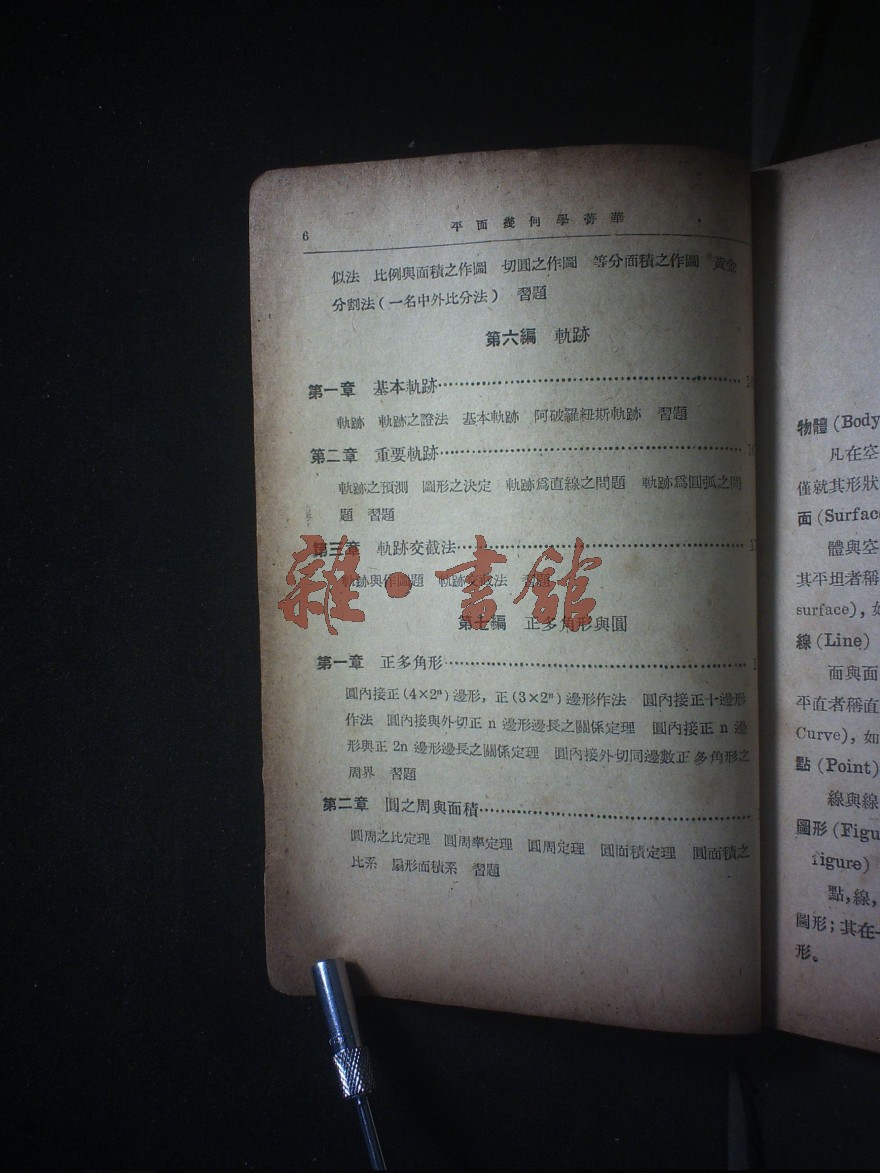 6
平面幾何學薈華
似法 比例與面積之作圖 切圓之作圖 等分面積之作圖 黃金
分割法(一名中外比分法) 習題
第六編 軌跡
第一章 基本軌跡
軌跡 軌跡之證法 基本軌跡 阿破羅紐斯軌跡 習題
第二章 重要軌跡
軌跡之預測 圖形之決定 軌跡爲直線之問題 軌跡爲圓弧之問
題 習題
第三章 軌跡交截法
軌跡與作圖題 軌跡交截法 習題
雜·書館
第七編 正多角形與圓
第一章 正多角形
圓內接正(4×2ⁿ)邊形,正(3×2ⁿ)邊形作法 圓內接正十邊形
作法 圓內接與外切正 n 邊形邊長之關係定理 圓內接正 n 邊
形與正 2n 邊形邊長之關係定理 圓內接外切同邊數正多角形之
周界 習題
第二章 圓之周與面積
圓周之比定理 圓周率定理 圓周定理 圓面積定理 圓面積之
比系 扇形面積系 習題
物體 (Body
凡在空
僅就其形狀
面 (Surface
體與空
其平坦者稱
surface),
線 (Line)
面與面
平直者稱直
Curve), 如
點 (Point)
線與線
圖形 (Figu
figure)
點,線,
圖形;其在一
形。